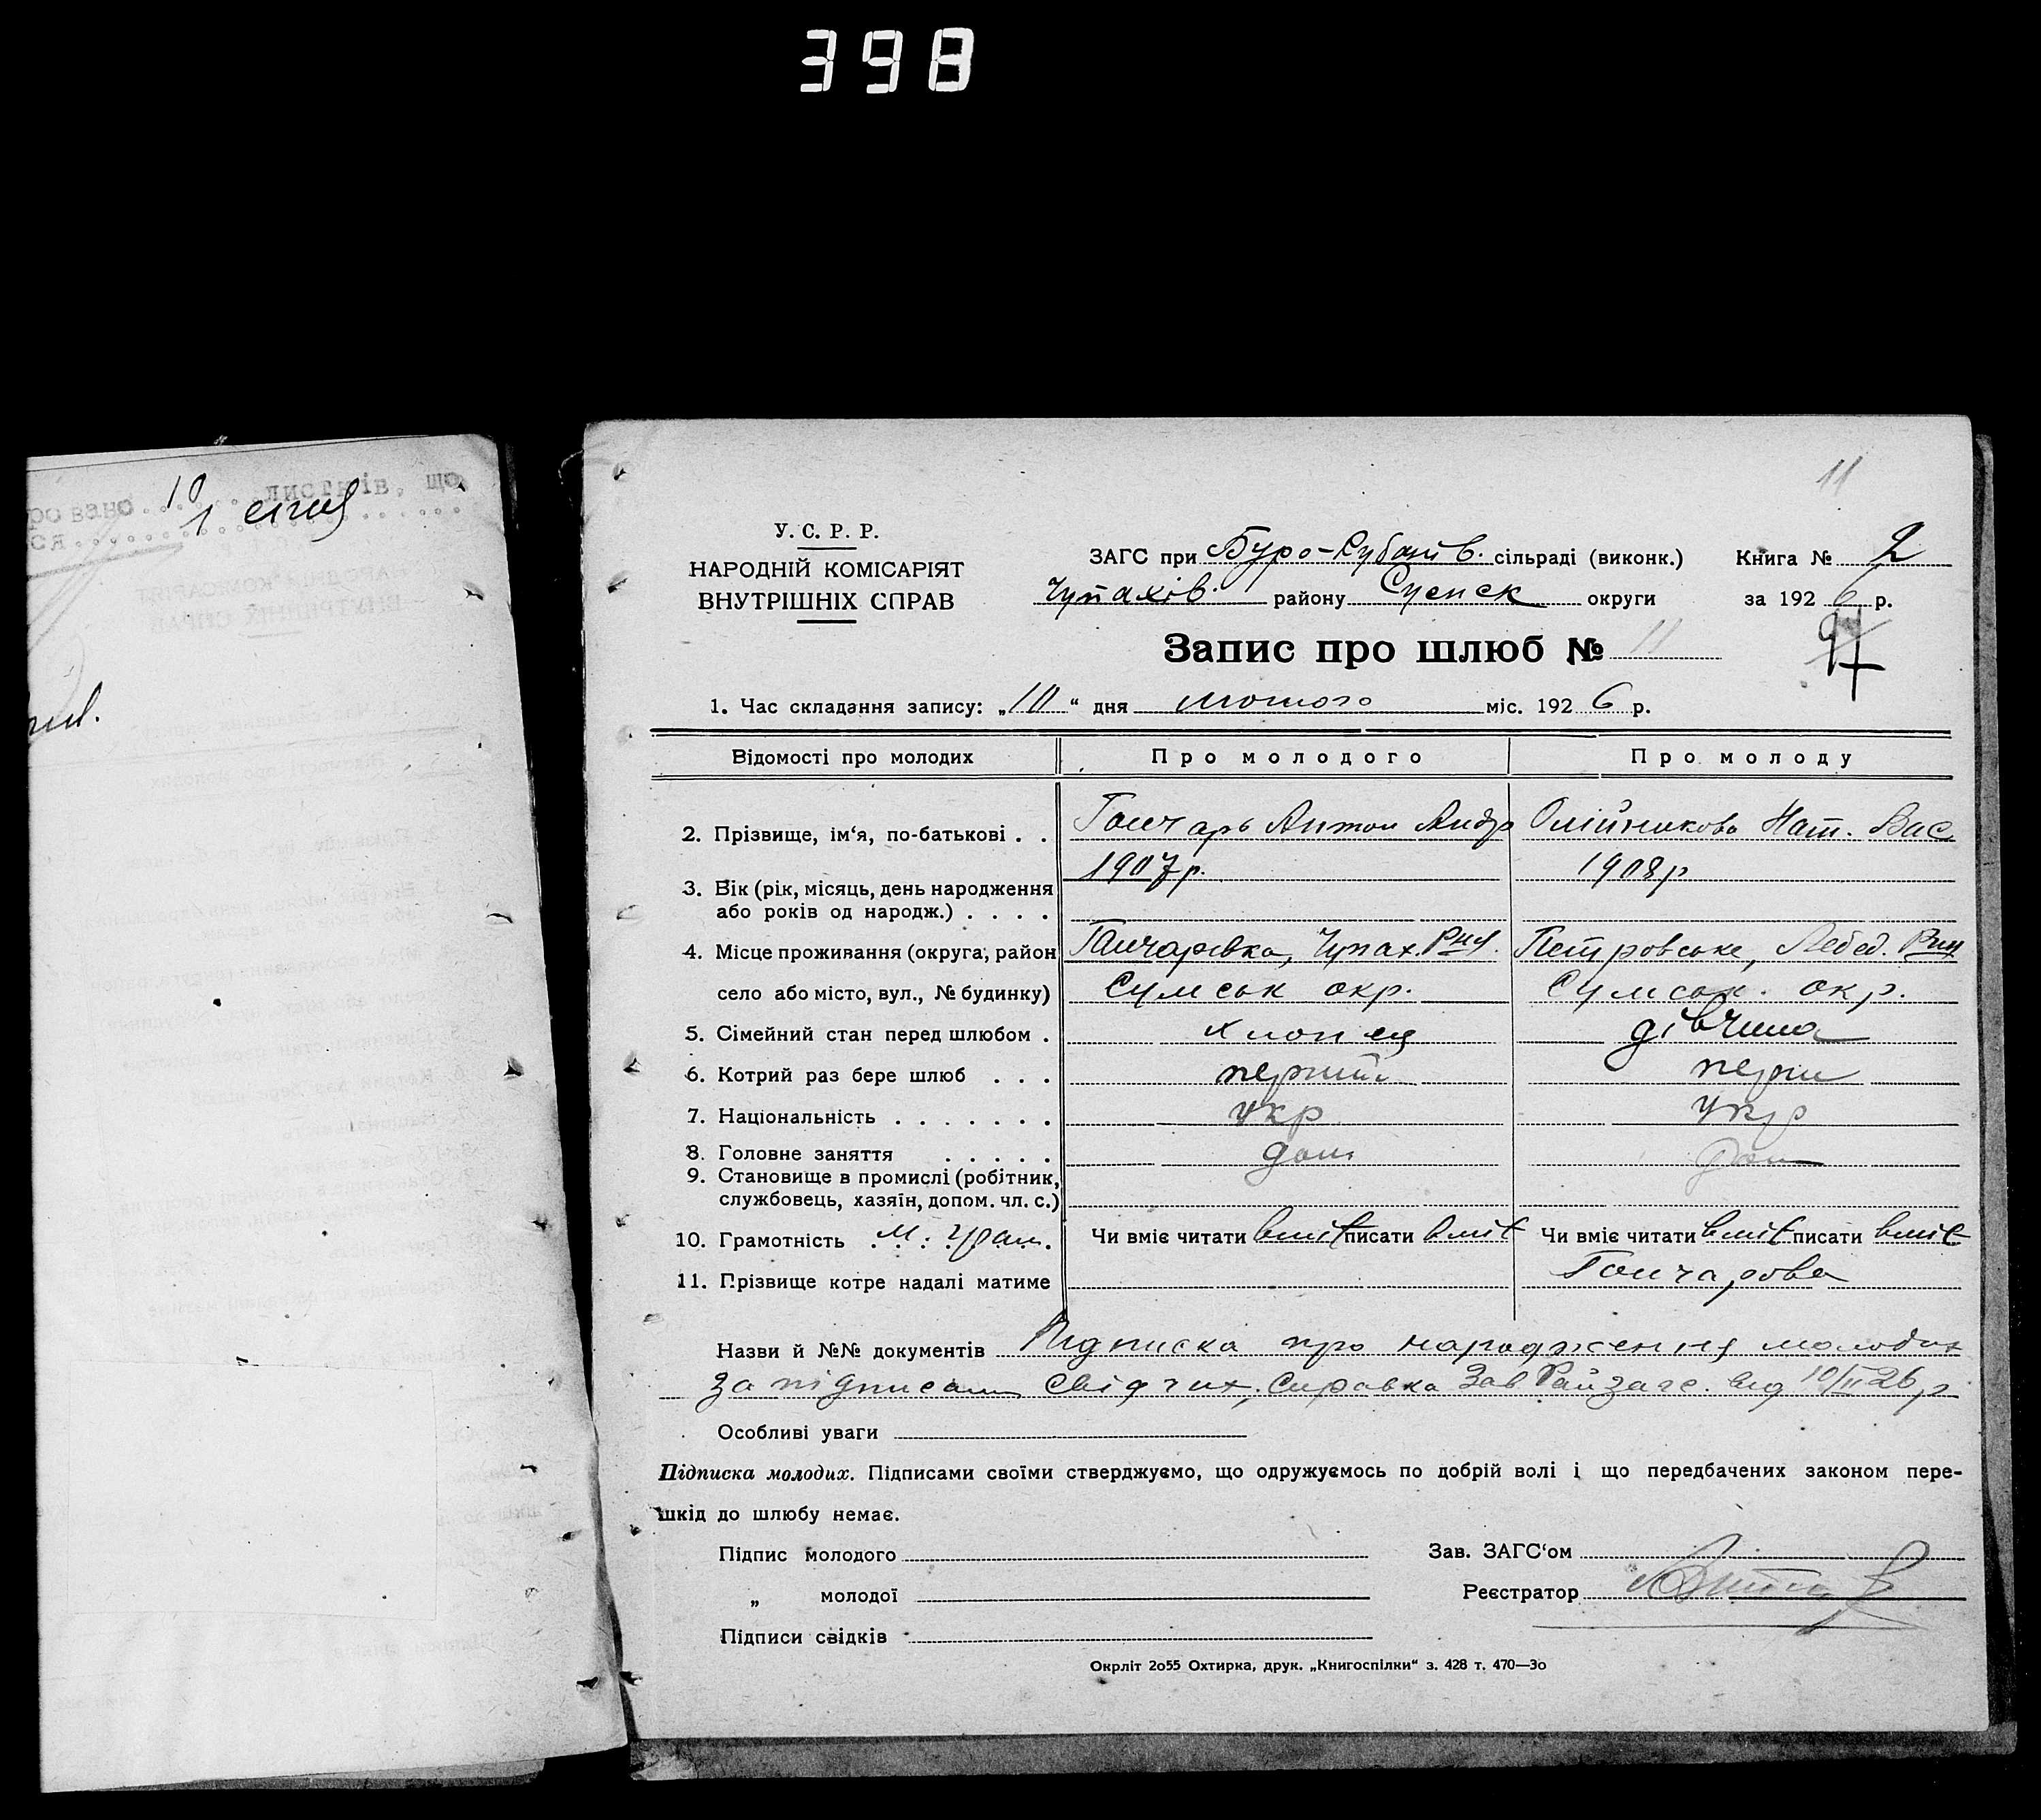 398
11
10 листків, що
У. С. Р. Р.
НАРОДНІЙ КОМІСАРІЯТ
ВНУТРІШНІХ СПРАВ
ЗАГС при Буро-Рубанів. сільраді (виконк.)
Книга № 2
Чупахів. району Сумськ округи
за 1926 р.
Запис про шлюб № 11
1. Час складання запису: „10“ дня лютого міс. 1926 р.
Відомості про молодих Про молодого Про молоду
2. Прізвище, ім‘я, по-батькові . . Гончарь Антон Андр Олійникова Нат. Вас.
1907 р. 1908 р
3. Вік (рік, місяць, день народження
або років од народж.) . . . .
4. Місце проживання (округа, район Гончарівка, Чупах. Рна. Петровське, Лебед. Рну
село або місто, вул., № будинку) Сумськ окр. Сумськ. окр.
5. Сімейний стан перед шлюбом . хлопец дівчина
6. Котрий раз бере шлюб . . . перший перш
7. Національність . . . . . . . укр укр
8. Головне заняття . . . . .
9. Становище в промислі (робітник,
службовець, хазяїн, допом. чл. с.)
10. Грамотність Чи вміє читати вміє писати вміє Чи вміє читати вміє писати вміє
11. Прізвище котре надалі матиме Гончарова
Назви й №№ документів Підписка про народження молодих
за підписами свідчих, Справка Зав Райзагс. від 10/II 26 р
Особливі уваги
Підписка молодих. Підписами своїми стверджуємо, що одружуємось по добрій волі і що передбачених законом пере-
шкід до шлюбу немає.
Підпис молодого
Зав. ЗАГС‘ом
„ молодої
Реєстратор
Підписи свідків
Окрліт 2о55 Охтирка, друк. „Книгоспілки“ з. 428 т. 470—3о